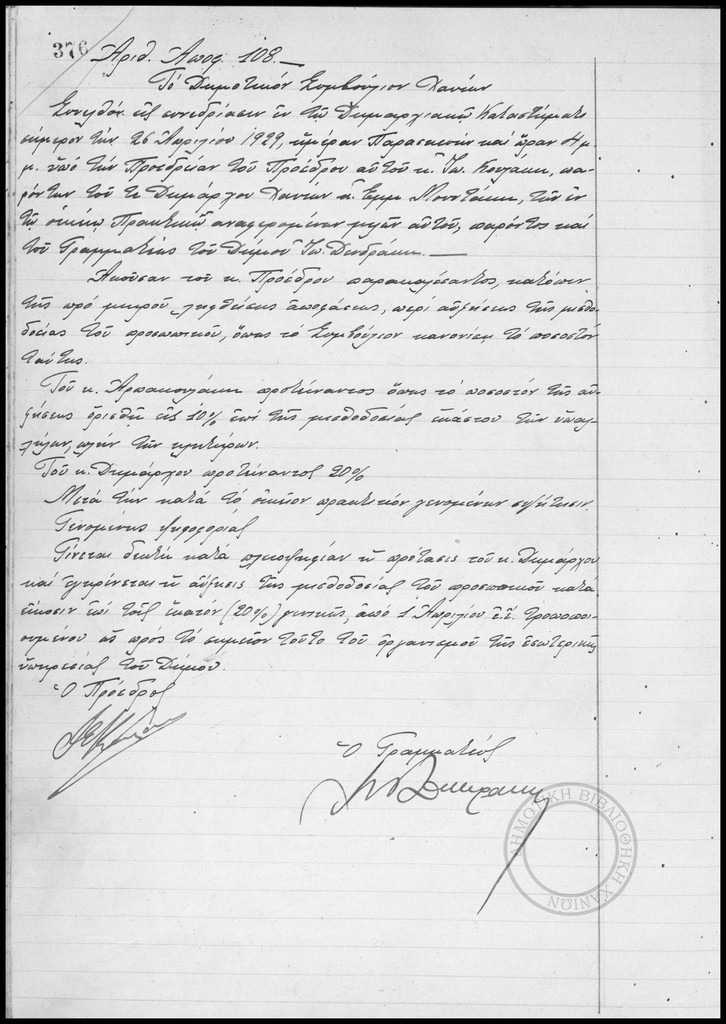 376
Αριθ. Αποφ. 108.—
Τό Δημοτικόν Συμβούλιον Χανίων
Συνελθόν εἰς συνεδρίασιν ἐν τῷ Δημαρχιακῷ Καταστήματι
σήμερον τήν 26 Ἀπριλίου 1929, ἡμέραν Παρασκευήν καί ὥραν 4 μ
μ. ὑπό τήν Προεδρείαν τοῦ Προέδρου αὐτοῦ κ. Ἰω. , πα-
ρόντων τοῦ τε Δημάρχου Χανίων κ. Ἐμμ. Μουντάκη, τῶν ἐν
τῷ οἰκείῳ Πρακτικῷ ἀναφερομένων μελῶν αὐτοῦ, παρόντος καί
τοῦ Γραμματέως τοῦ Δήμου Ἰω. Δενδράκη.—
Ἀκούσαν τοῦ κ. Προέδρου παρακαλέσαντος, κατόπιν
τῆς πρό μικροῦ ληφθείσης ἀποφάσεως, περί αὐξήσεως τῆς μισθο-
δοσίας τοῦ προσωπικοῦ, ὅπως τό Συμβούλιον κανονίσῃ τό ποσοστόν
ταύτης.
Τοῦ κ. προτείναντος ὅπως τό ποσοστόν τῆς αὐ-
ξήσεως ὁρισθῇ εἰς 10% ἐπί τῆς μισθοδοσίας ἑκάστου τῶν ὑπαλ-
λήλων, πλήν τῶν κλητήρων.
Τοῦ κ. Δημάρχου προτείναντος 20%
Μετά τήν κατά τό οἰκεῖον πρακτικόν γενομένην συζήτησιν.
Γενομένης ψηφοφορίας
Γίνεται δεκτή κατά πλειοψηφίαν ἡ πρότασις τοῦ κ. Δημάρχου
καί ἐγκρίνεται ἡ αὔξησις τῆς μισθοδοσίας τοῦ προσωπικοῦ κατά
εἴκοσιν ἐπί τοῖς ἑκατόν (20%) γενικῶς, ἀπό 1 Ἀπριλίου ἐ.ἔ. τροποποι-
ουμένου ὡς πρός τό σημεῖον τοῦτο τοῦ ὀργανισμοῦ τῆς ἐσωτερικῆς
ὑπηρεσίας τοῦ Δήμου.
Ὁ Πρόεδρος
Ὁ Γραμματεύς
ΔΗΜΟΤΙΚΗ ΒΙΒΛΙΟΘΗΚΗ ΧΑΝΙΩΝ